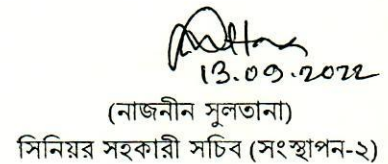 13.09.2022
(নাজনীন সুলতানা)
সিনিয়র সহকারী সচিব (সংস্থাপন-২)